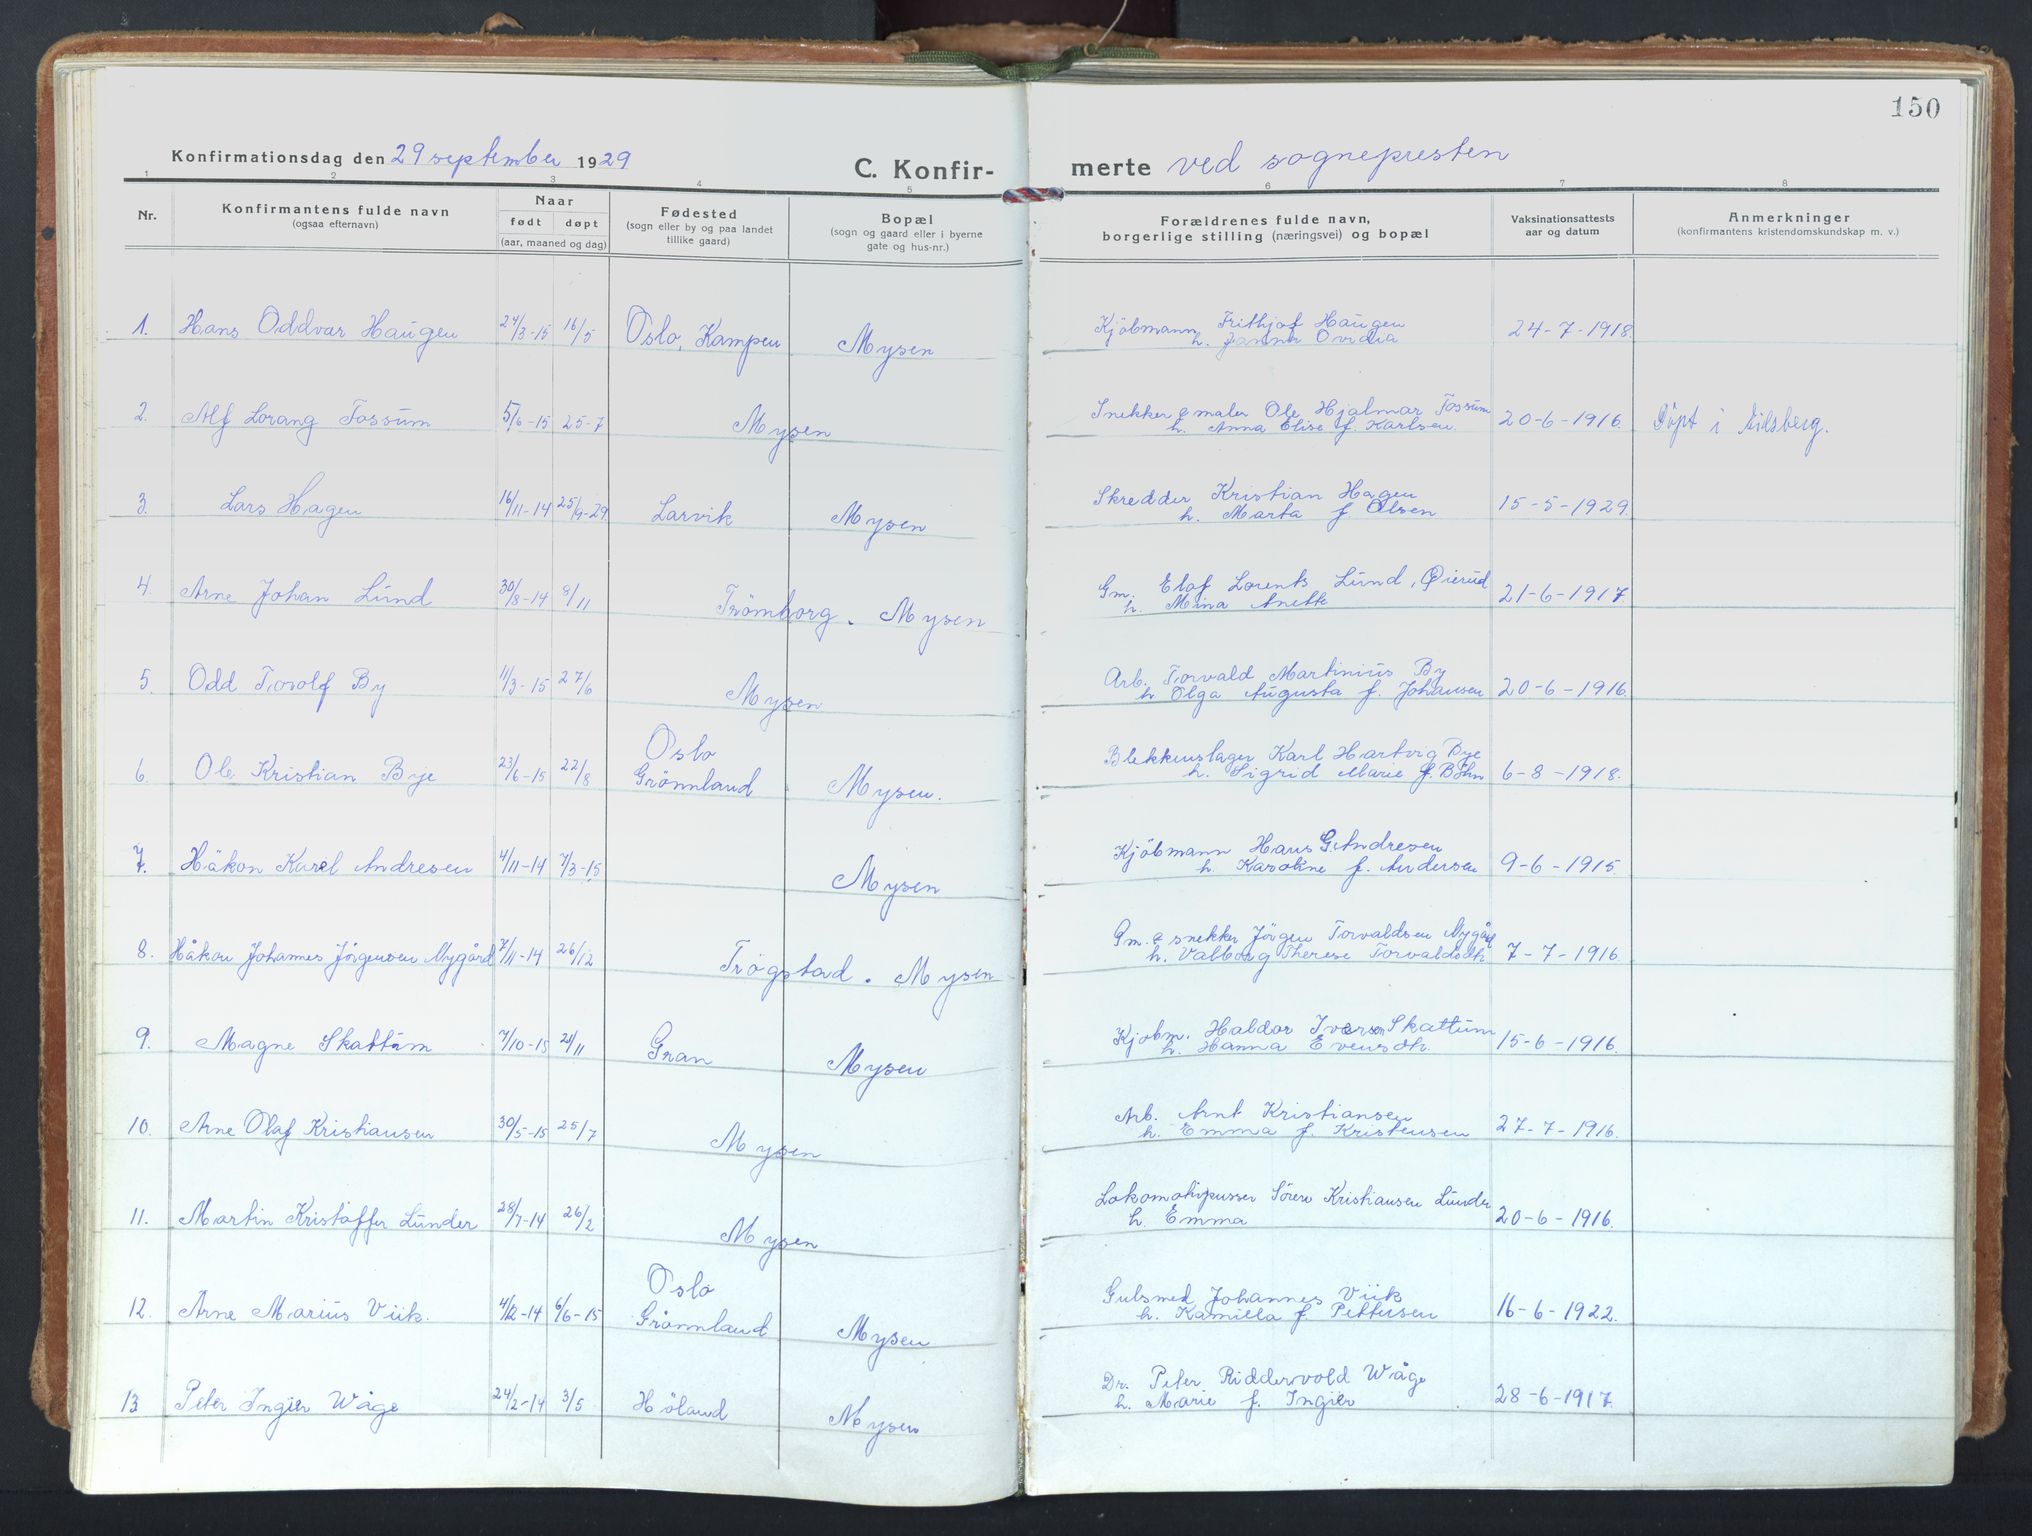 150
Konfirmationsdag den 29 september 1929
C. Konfir-
merte ved sognepresten
1 2 3 4 5 6 7 8
Nr.
Konfirmantens fulde navn
(ogsaa efternavn)
Naar
født døpt
(aar, maaned og dag)
Fødested
(sogn eller by og paa landet
tillike gaard)
Bopæl
(sogn og gaard eller i byerne
gate og hus-nr.)
Forældrenes fulde navn,
borgerlige stilling (næringsvei) og bopæl
Vaksinationsattests
aar og datum
Anmerkninger
(konfirmantens kristendomskundskap m. v.)
1. Hans Oddvar Haugen 24/3-15 16/5 Oslo, Kampen Mysen Kjöbmann Frithjof Haugen 24-7-1918.
h. Janna Ovidia
2. Alf Lorang Fossum 5/6-15 25-7 Mysen Snekker & maler Ole Hjalmar Fossum 20-6-1916. Döpt i Eidsberg.
h. Anna Elise f. Karlsen.
3. Lars Hagen 16/11-14 25/9-29 Larvik Mysen Skredder Kristian Hagen 15-5-1929.
h. Marta f. Olsen
4. Arne Johan Lund 30/8-14 8/11 Trömborg. Mysen Gm. Elaf Lorents Lund, Øierud 21-6-1917
h. Mina Anette
5. Odd Torolf By 11/3-15 27/6 Mysen Arb. Torvald Martinius By 20-6-1916.
h. Olga Augusta f. Johansen
6. Ole Kristian Bye 23/6-15 22/8 Oslo Mysen. Blekkenslager Karl Hartvig Bye 6-8-1918.
Grönnland h. Sigrid Marie f. Böhn
7. Håkon Karel Andresen 4/11-14 7/3-15 Mysen Kjöbmann Hans G. Andresen 9-6-1915.
h. Karoline f. Andersen
8. Håkon Johannes Jörgensen Nygård 7/11-14 26/12 Trögstad. Mysen Gm. & snekker Jörgen Torvaldsen Nygård 7-7-1916
h. Valborg Therese Torvaldsdtr.
9. Magne Skattum 7/10-15 21/11 Gran Mysen Kjöbm. Haldor Iversen Skattum 15-6-1916.
h. Hanna Evensdtr.
10. Arne Olaf Kristiansen 30/5-15 25/7 Mysen Arb. Arnt Kristiansen 27-7-1916.
h. Emma f. Kristensen
11. Martin Kristoffer Lunder 28/7-14 26/2 Mysen Lokomotivpusser Sören Kristiansen Lunder 20-6-1916.
h. Emma
12. Arne Marius Viik. 4/12-14 6/6-15 Oslo Mysen Gulsmed Johannes Viik 16-6-1922.
Grönnland h. Kamilla f. Pettersen
13 Peter Ingier Wåge 24/2-14 3/5 Höland Mysen Dr. Peter Riddervold Wåge 28-6-1917.
h. Marie f. Ingier